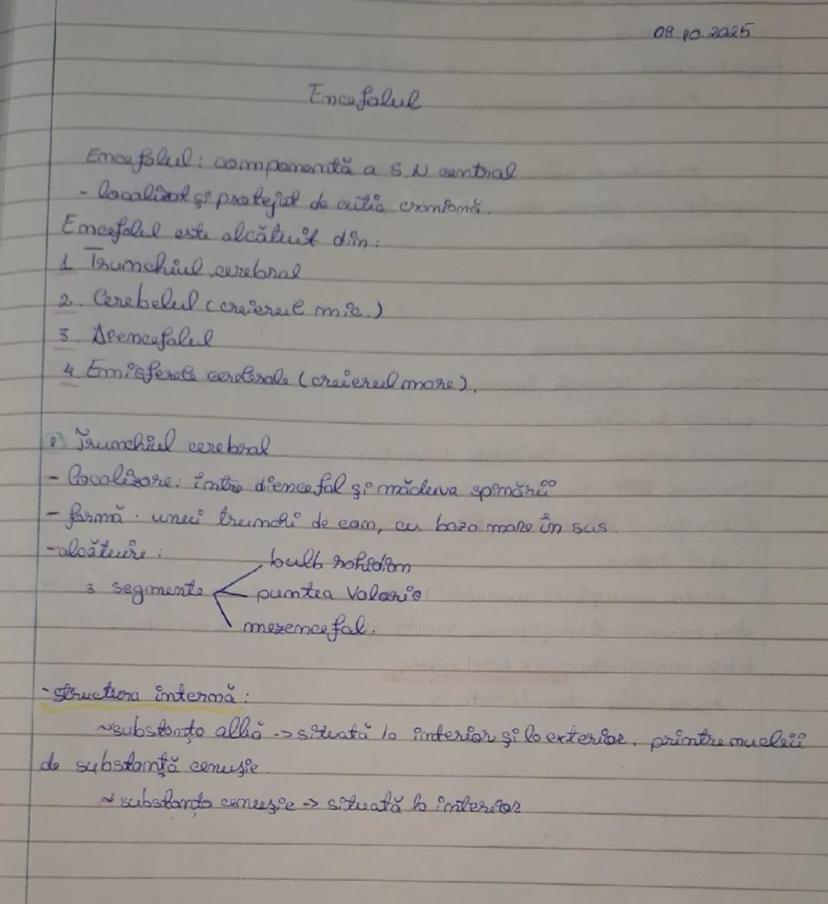 08.10.2025
Encefalul
Encefalul: componentă a S.N central
- localizat și protejat de cutia craniană.
Encefalul este alcătuit din:
1 Trunchiul cerebral
2. Cerebelul (creierul mic)
3. Diencefalul
4. Emisferele cerebrale (creierul mare).
1) Trunchiul cerebral
- localizare: între diencefal și măduva spinării
- formă: unui trunchi de con, cu baza mare în sus.
- alcătuire:
bulb rahidian
3 segmente puntea Varolio
mezencefal.
- structura internă:
~substanța albă -> situată la interior și la exterior, printre nucleii
de substanță cenușie
~ substanța cenușie -> situată la interior